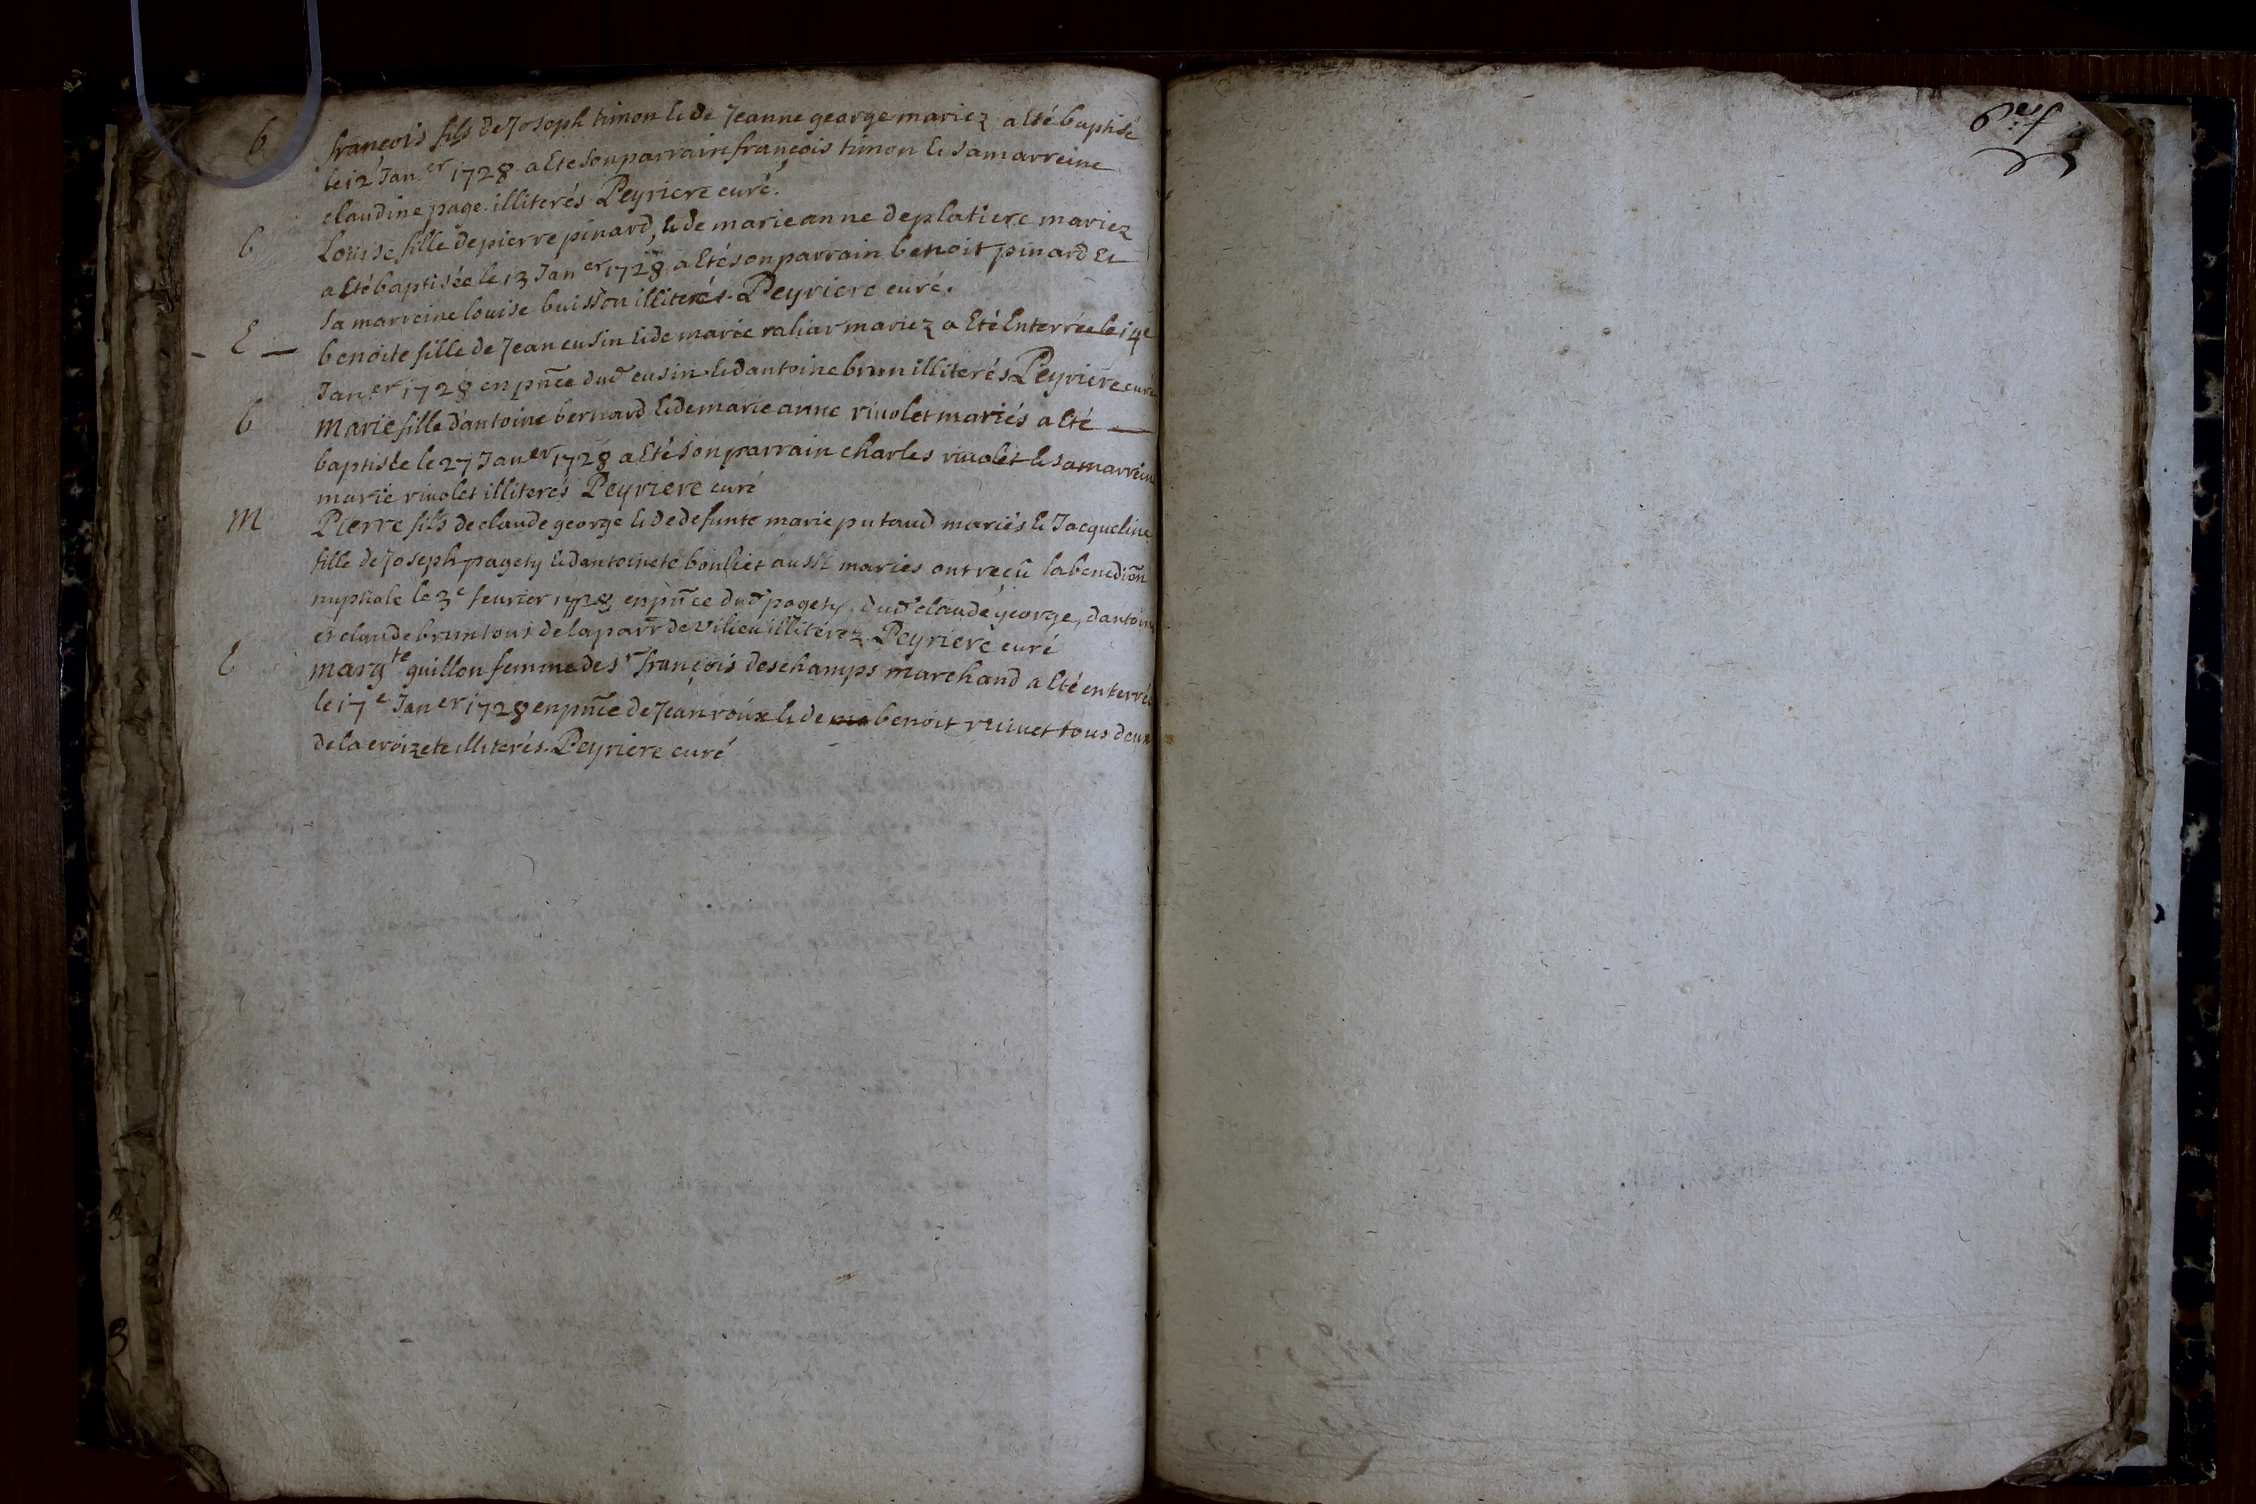 b françois fils de Joseph timon & de Jeanne george mariez a Eté baptisé
le 12 Jan.er 1728 a Ete son parrain françois timon & sa marreine
claudine page illiterés Peyriere curé.
b Louise fille de pierre pinard, & de marie anne deplatiere mariez
a Eté baptisée le 13 Jan er 1728 a Eté son parrain benoit pinard Et
sa marreine louise buisson illiterés. Peyriere curé.
E benoite fille de Jean cusin & de marie raliar mariez a Eté Enterrée le 14e
Jan.er 1728 en pñce dud cusin & dantoine brun illiterés Peyriere curé
b Marie fille dantoine bernard & de marie anne riuolet mariés a Eté
baptisée le 27 Jan er 1728 a Eté son parrain charles riuolet & sa marreine
marie riuolet illiterés Peyriere curé
M Pierre fils de claude george & de defunte marie putaud mariés & Jacqueline
fille de Joseph pagety & dantoinete boulliet aussi mariés ont reçû la benedion
nuptiale le 3e feurier 1728 en pñce dud pagety, dud claude george, dantoine
et claude brun tous de la parr de vilieu illitérez. Peyriere curé
E marg te guillon femme de sr françois deschamps marchand a Eté enterrée
le 17e Jan er 1728 en pñce de Jean roux & de benoit ruiuet tous deux
de la croizete illiterés. Peyriere curé